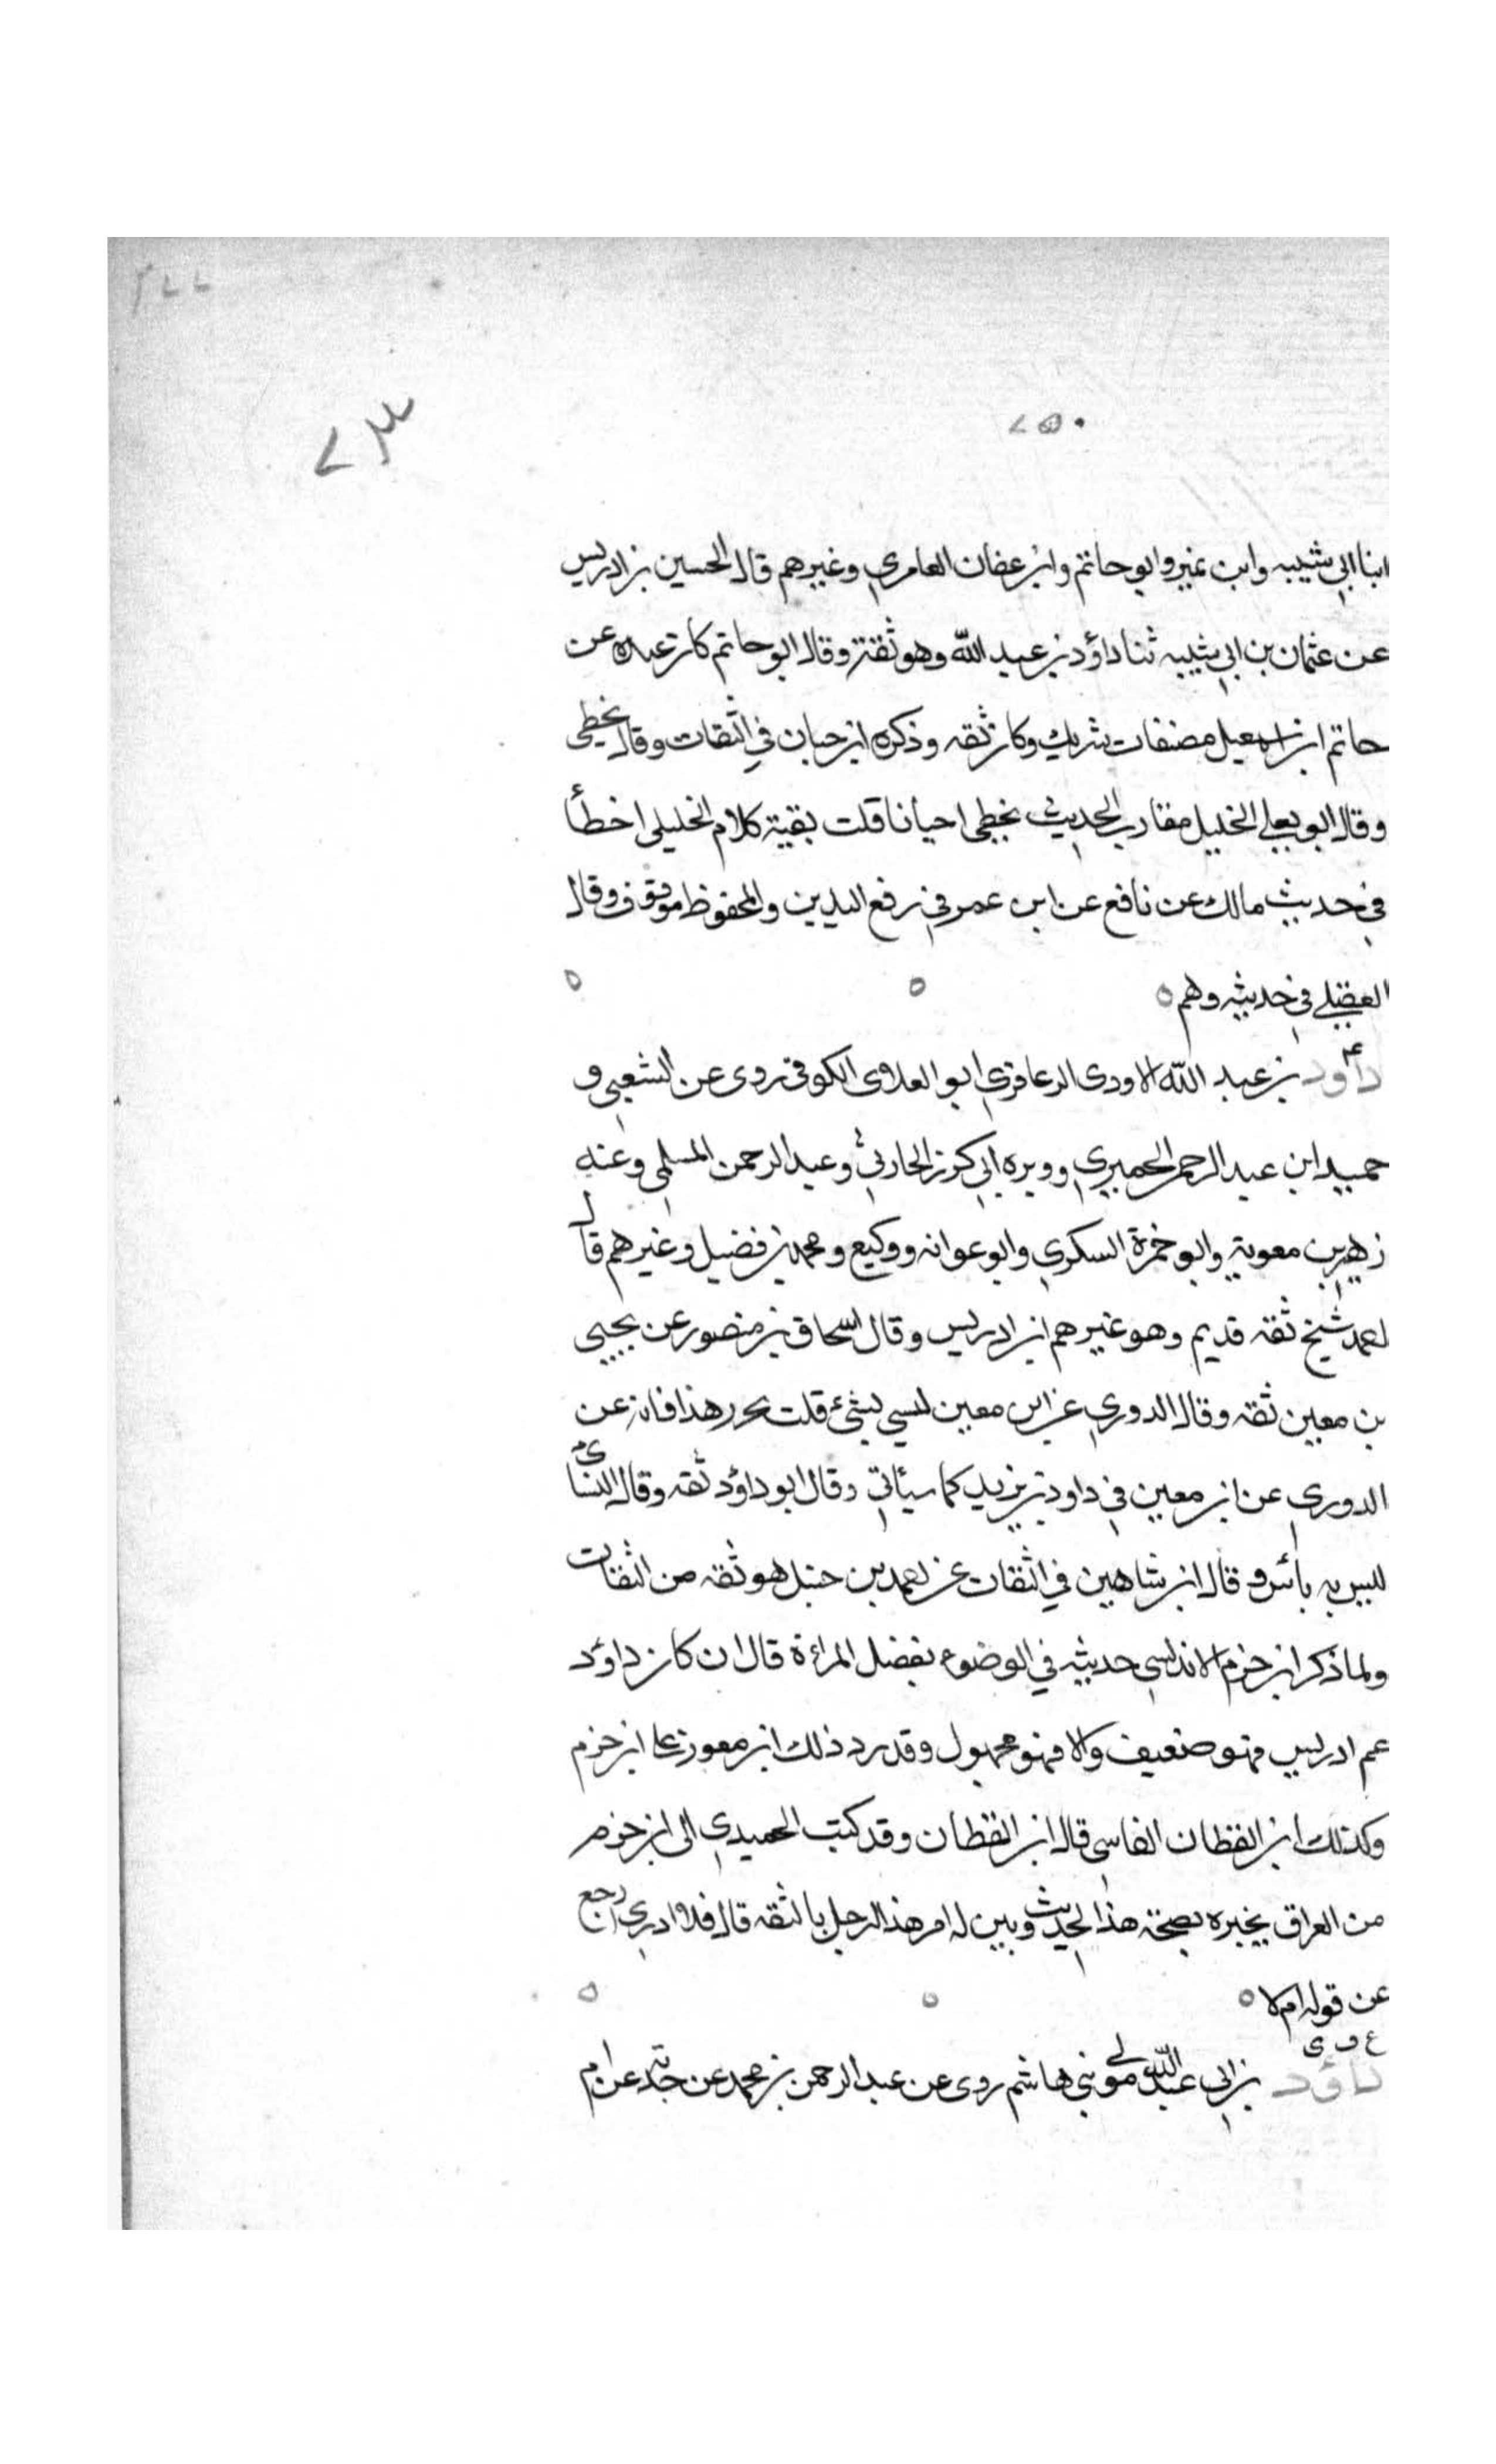 ٢٧٧
٧٣
٢٥٠
ابنا ابي شيبه وابن نمير وابو حاتم وابن عفان العامري وغيرهم قال الحسين بن ادريس
عن عثمان بن ابي شيبه ثنا داؤد بن عبد الله وهو ثقة وقال ابو حاتم كان عنده عن
حاتم ابن اسمعيل مصنفات شريك وكان ثقه وذكره ابن حبان في الثقات وقال يخطي
وقال ابو يعلي الخليل مقارب الحديث يخطي احيانا قلت بقية كلام الخليلي اخطأ
في حديث مالك عن نافع عن ابن عمر في رفع اليدين والمحفوظ موقوف وقال
العقيلي في حديثه وهم ه ه ه
٤
داؤد بن عبد الله الاودى الزعافري ابو العلاى الكوفي روى عن الشعبي و
حميد ابن عبد الرحمن الحميري ووبره ابي كرز الحارثي وعبد الرحمن المسلمي وعنه
زهير بن معوية وابو حمزة السكري وابو عوانه ووكيع ومحمد بن فضيل وغيرهم قال
احمد شيخ ثقه قديم وهو غير هم ابن ادريس وقال اسحاق بن منصور عن يحيى
بن معين ثقه وقال الدوري عن ابن معين ليس بشئ قلت يحرر هذا فانه عن
الدوري عن ابن معين في داود بن يزيد كما سيأتي وقال ابو داؤد ثقه وقال النسائ
ليس به بأس وقال ابن شاهين في الثقات عن احمد بن حنبل هو ثقه من الثقات
ولما ذكر ابن حزم الاندلسي حديثه في الوضوء بفضل المراءة قال ان كان داؤد
عم ادريس فهو ضعيف والا فهو مجهول وقد رد ذلك ابن مفوز على ابن حزم
وكذلك ابن القطان الفاسي قال ابن القطان وقد كتب الحميدي الى ابن حزم
من العراق يخبره بصحة هذا الحديث وبين له امر هذا الرجل بالثقه قال فلا ادري ارجع
عن قوله ام لا ه ه ه
داؤد بن ابي عبد الله مولي بني هاشم روى عن عبد الرحمن بن محمد عن جدته عن ام